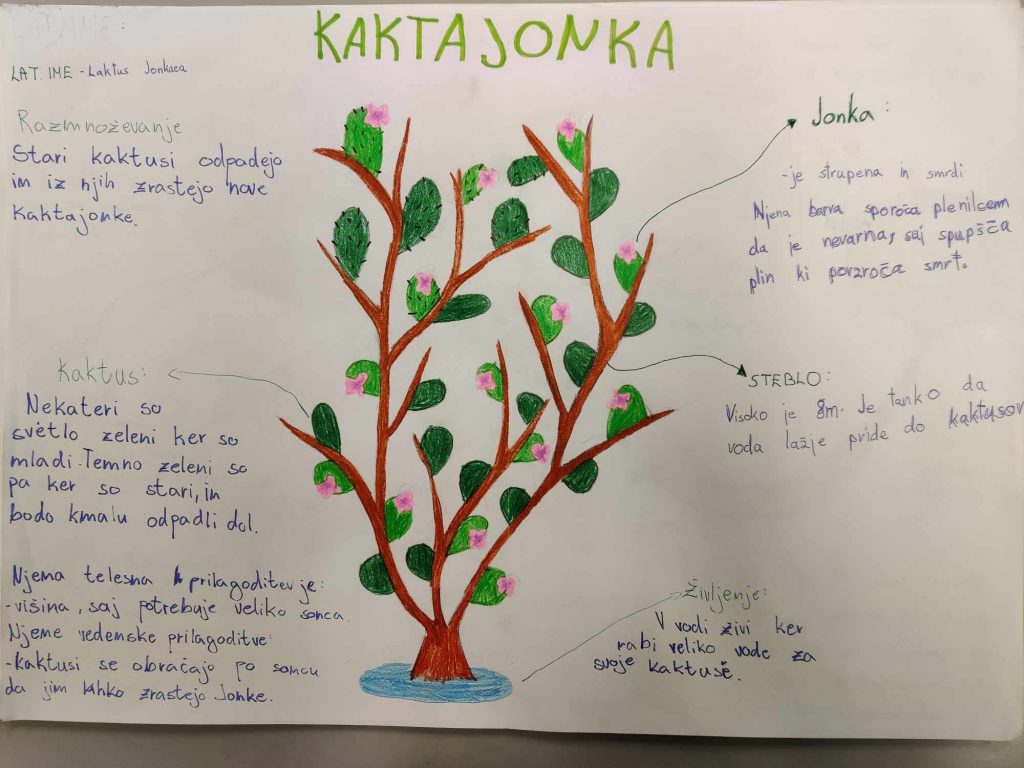 KAKTAJONKA
LAT. IME - Laktus Jonkaea
Razmnoževanje
Stari kaktusi odpadejo
in iz njih zrastejo nove
kaktajonke.
Kaktus:
Nekateri so
svetlo zeleni ker so
mladi. Temno zeleni so
pa ker so stari, in
bodo kmalu odpadli dol.
Njema telesna prilagoditev je:
-višina, saj potrebuje veliko sonca.
Njeme vedemske prilagoditve:
-kaktusi se obračajo po soncu
da jim lahko zrastejo Jonke.
Jonka:
-je strupena in smrdi
Njena barva sporoča plenilcem
da je nevarna, saj spupšča
plin ki povzroča smrt.
STEBLO:
Visoko je 8m. Je tanko da
voda lažje pride do kaktusov
Življenje:
V vodi živi ker
rabi veliko vode za
svoje kaktuse.